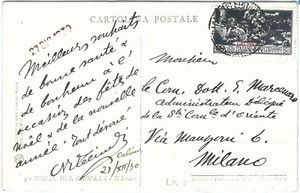 CARTOLINA POSTALE
Meilleurs souhaits
de bonne santé &
de bonheur à l'
occasion des fêtes de
Noël & de la nouvelle
année! Tout dévoué
Calino
21/XII/30
Monsieur
le Com. Dott. F.
Administrateur Délégué
de la Ste Com. le d'Oriente
Via Manzoni 6.
Milano